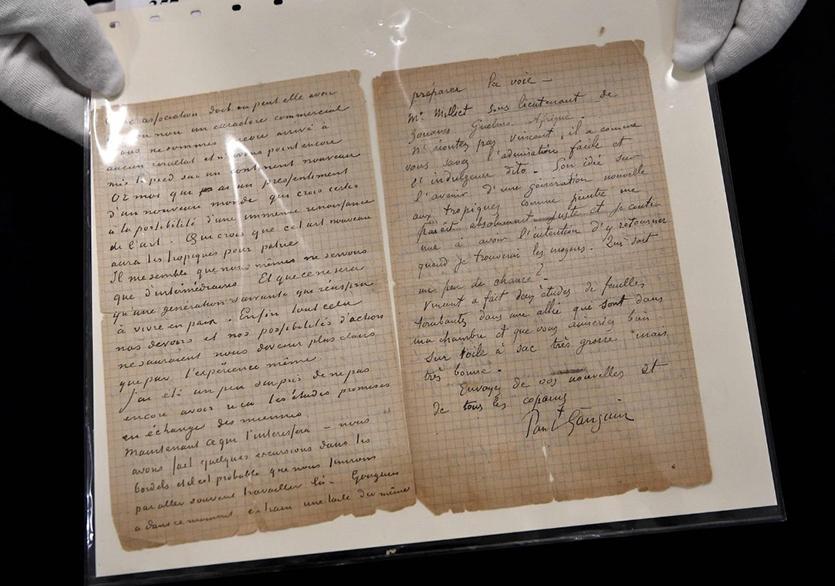 association doit on peut elle avoir
ou non un caractère commercial
nous ne sommes encore arrivé à
aucun résultat et n'avons point encore
mis le pied sur un continent nouveau
Or moi qui ai un presentiment
d'un nouveau monde qui crois certes
à la possibilité d'une immense renaissance
de l'art. Qui crois que cet art nouveau
aura les tropiques pour patrie
Il me semble que nous mêmes ne servons
que d'intermédiaires. Et que ce ne sera
qu'une génération suivante qui réussira
à vivre en paix. Enfin tout cela
nos devoirs et nos possibilités d'action
ne sauraient nous devenir plus clairs
que par l'expérience même.
J'ai été un peu surpris de ne pas
encore avoir reçu les études promises
en échange des miennes
Maintenant ce qui t'interessera – nous
avons fait quelques excursions dans les
bordels et il est probable que nous finirons
par aller souvent travailler là. Gauguin
a dans ce moment en train une toile du même
préparer la voie –
Mr Milliet sous lieutenant de
Zouaves Guelma Afrique.
N'écoutez pas Vincent, il a comme
vous savez l'admiration facile et
l'indulgence dito. Son idée sur
l'avenir d'une génération nouvelle
aux tropiques comme peintre me
parait absolument juste et je conti
nue à avoir l'intention d'y retourner
quand je trouverai les moyens. Qui sait
un peu de chance ?
Vincent a fait deux études de feuilles
tombantes dans une allée qui sont dans
ma chambre et que vous aimeriez bien
sur toile à sac très grosse mais
très bonne.
Envoyez de vos nouvelles et
de tous les copains
Paul Gauguin